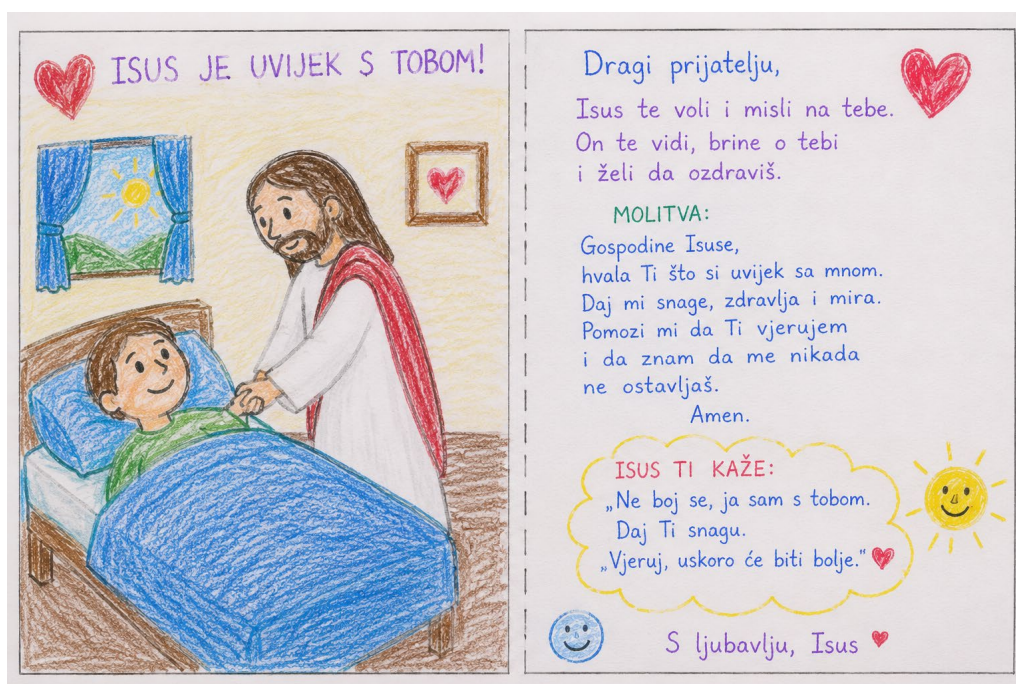 ISUS JE UVIJEK S TOBOM!
Dragi prijatelju,
Isus te voli i misli na tebe.
On te vidi, brine o tebi
i želi da ozdraviš.
MOLITVA:
Gospodine Isuse,
hvala Ti što si uvijek sa mnom.
Daj mi snage, zdravlja i mira.
Pomozi mi da Ti vjerujem
i da znam da me nikada
ne ostavljaš.
Amen.
ISUS TI KAŽE:
„Ne boj se, ja sam s tobom.
Daj Ti snagu.
„Vjeruj, uskoro će biti bolje."
S ljubavlju, Isus